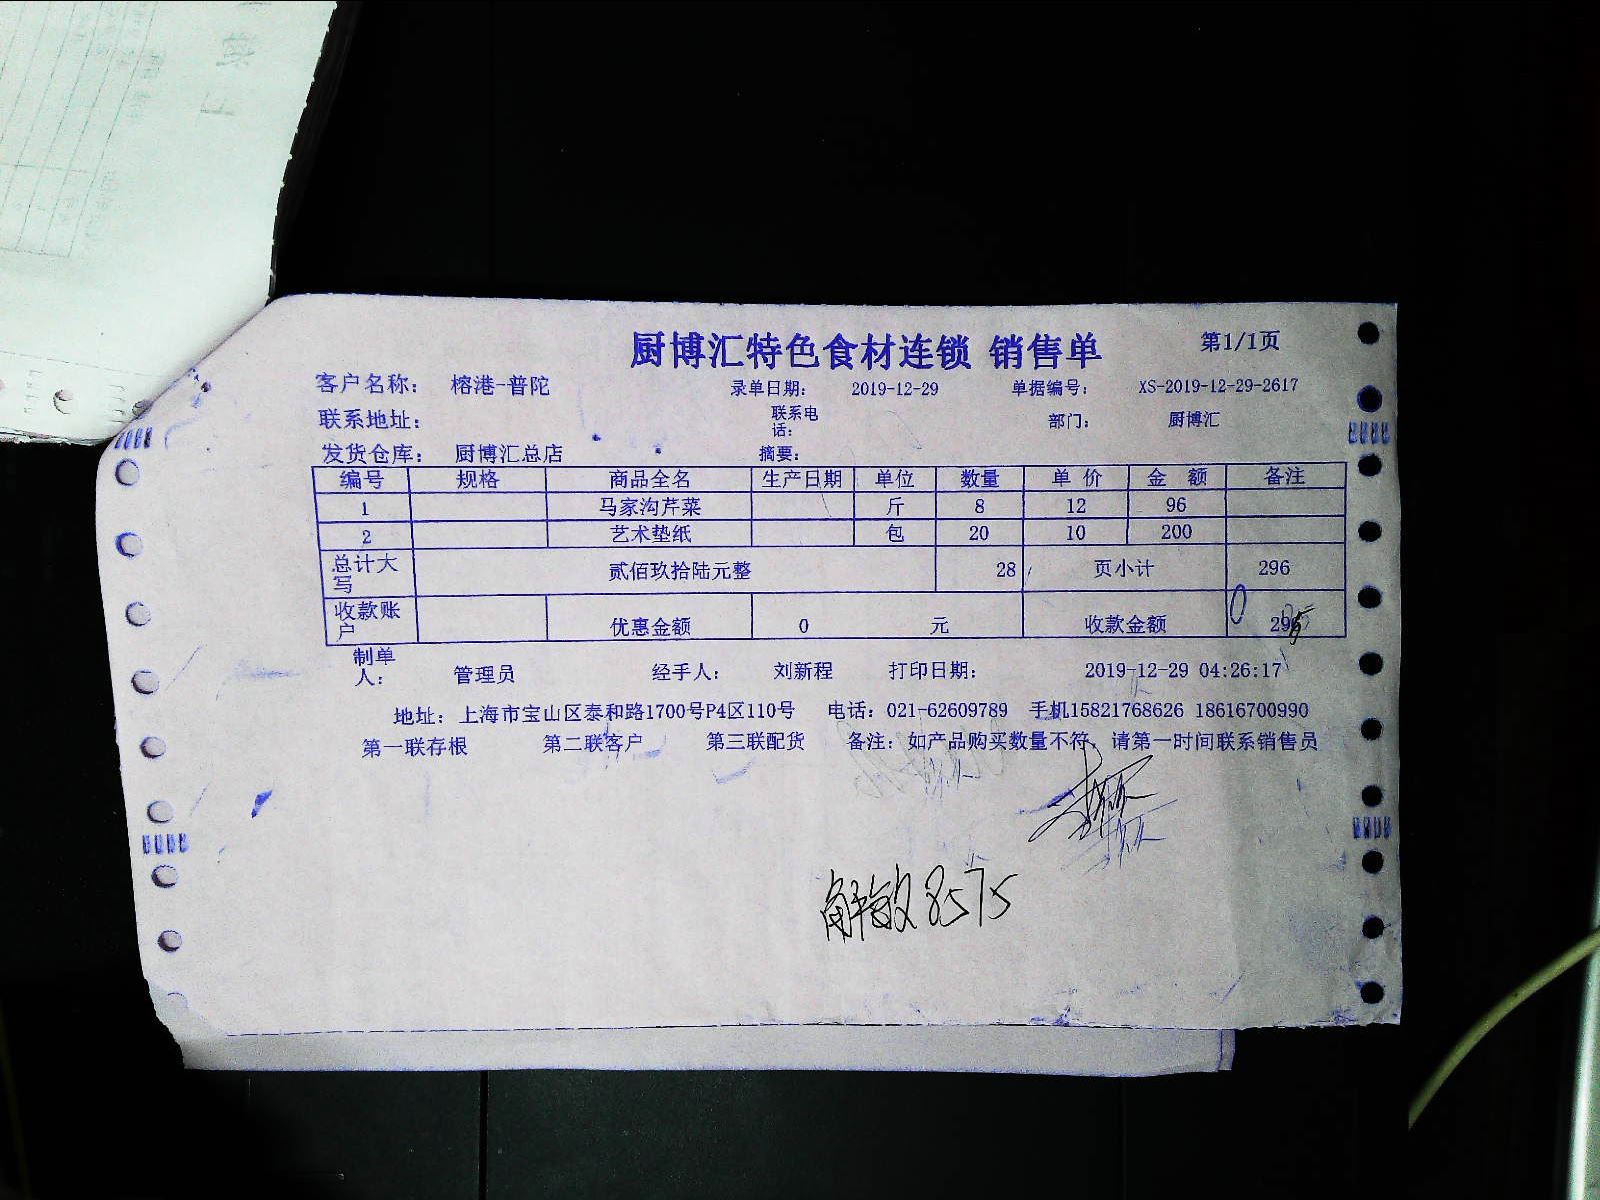 厨博汇特色食材连锁 销售单 第1/1页
客户名称： 榕港-普陀 录单日期： 2019-12-29 单据编号： XS-2019-12-29-2617
联系地址： 联系电话： 部门： 厨博汇
发货仓库： 厨博汇总店 摘要：
编号 规格 商品全名 生产日期 单位 数量 单价 金额 备注
1 马家沟芹菜 斤 8 12 96
2 艺术垫纸 包 20 10 200
总计大写 贰佰玖拾陆元整 28 页小计 296
收款账户 优惠金额 0 元 收款金额 296
制单人： 管理员 经手人： 刘新程 打印日期： 2019-12-29 04:26:17
地址：上海市宝山区泰和路1700号P4区110号 电话：021-62609789 手机15821768626 18616700990
第一联存根 第二联客户 第三联配货 备注：如产品购买数量不符，请第一时间联系销售员
解敏 8575